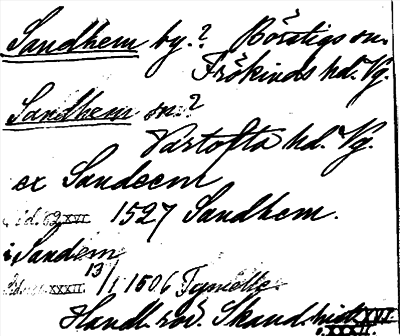 Sandhem by.? Börstigs sn.
Frökinds hd. Vg.
Sandhem sn.?
Vartofta hd. Vg.
ex Sandeem
XVI 1527 Sandhem.
i Sandem
XXXII 13/1 1506
Handl. rör. Skand. hist. XVI
XXXII.